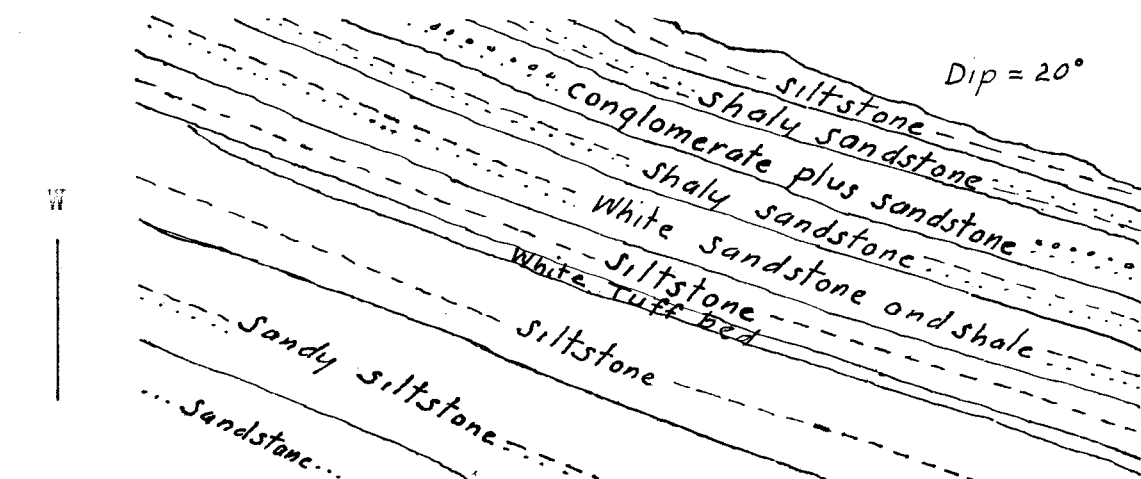 Dip = 20°
siltstone
shaly sandstone
conglomerate plus sandstone
shaly sandstone
White sandstone and shale
siltstone
White Tuff bed
siltstone
Sandy siltstone
sandstane